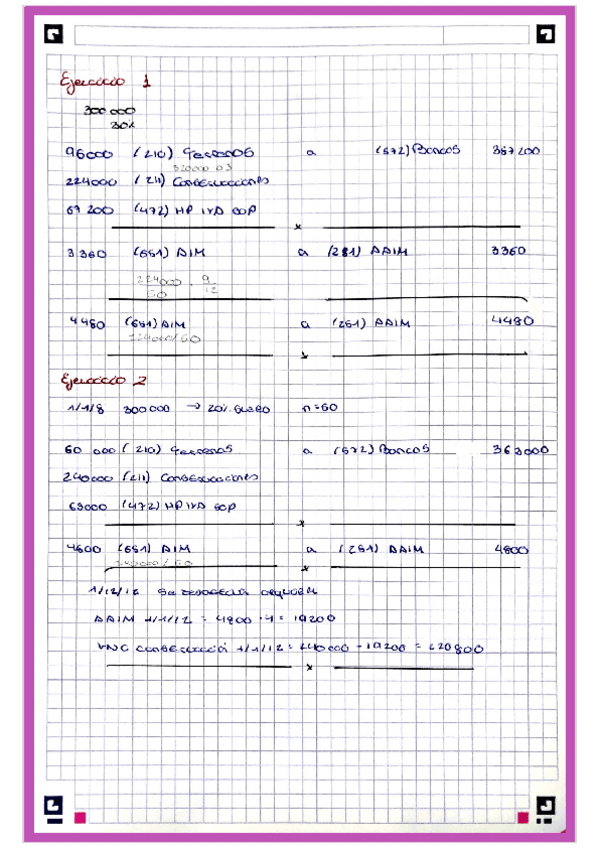 Ejercicio 1
300 000
30%
96000 (210) Terrenos a (572) Bancos 387200
320000 0'3
224000 (211) Construcciones
67 200 (472) HP IVA SOP
x
3 360 (681) AIM a (281) AAIM 3360
224000 / 50 · 9 / 12
4480 (681) AIM a (281) AAIM 4480
224000/50
x
Ejercicio 2
1/1/8 300000 → 20% suelo n=50
60 000 (210) Terrenos a (572) Bancos 363000
240000 (211) Construcciones
63000 (472) HP IVA SOP
x
4800 (681) AIM a (281) AAIM 4800
240000 / 50
x
1/12/12
AAIM 1/1/12 = 4800 · 4 = 19200
VNC construcció 1/1/12 = 240000 - 19200 = 220800
x